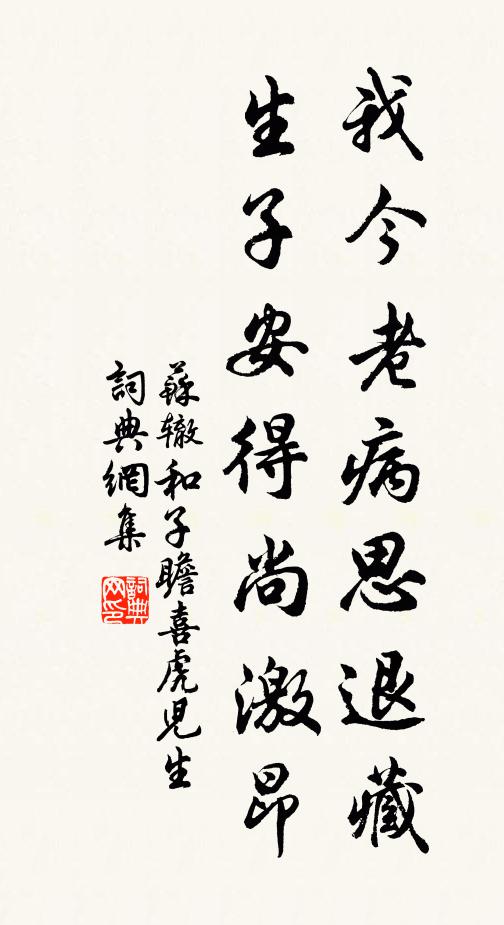 我今老病思退藏
生子安得尚激昂
蘇轍和子瞻喜虎児生
詞典網集
詞典
网印